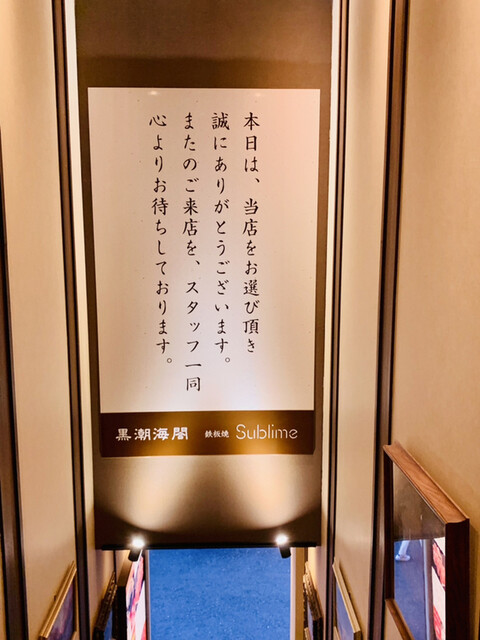 本日は、当店をお選び頂き
誠にありがとうございます。
またのご来店を、スタッフ一同
心よりお待ちしております。
黒潮海閣 鉄板焼 Sublime